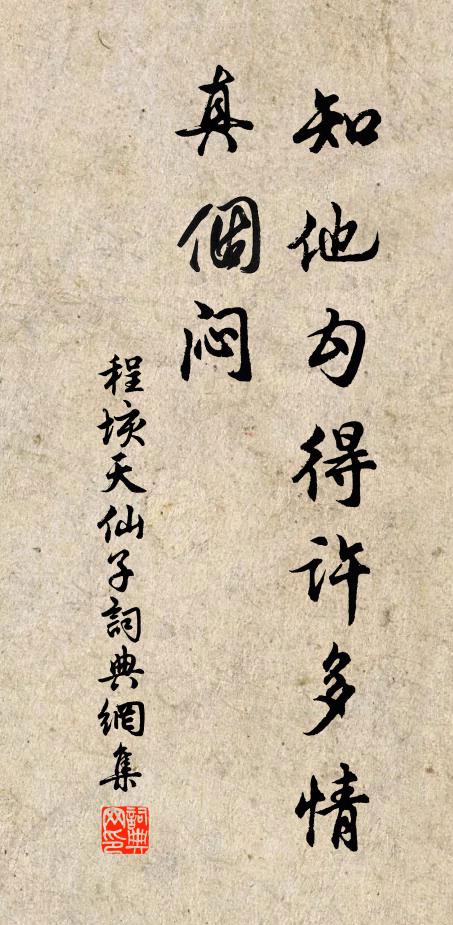 知他勾得許多情
真個悶
程垓天仙子詞典網集
詞典
网印